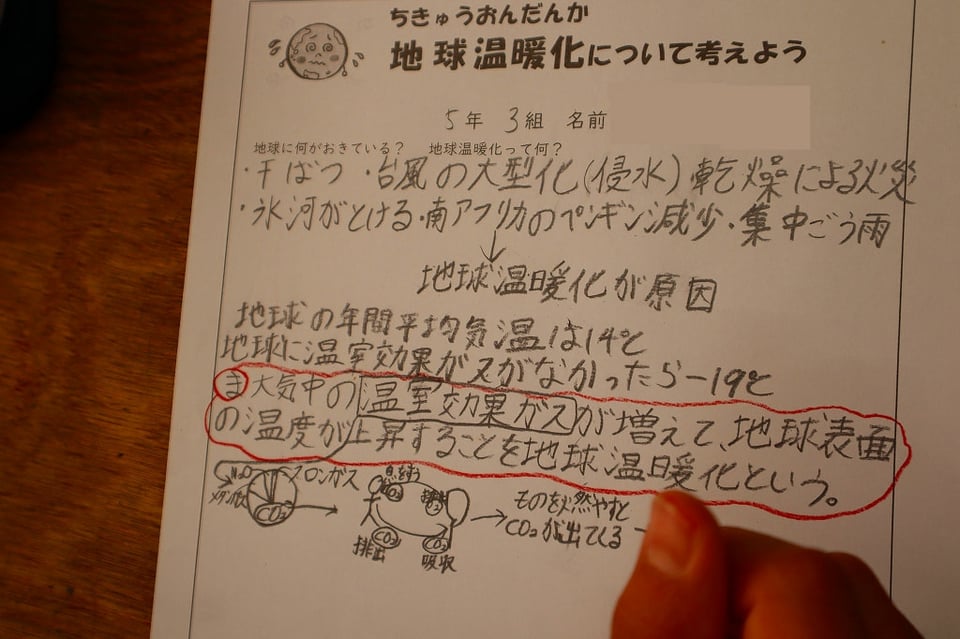 ちきゅうおんだんか
地球温暖化について考えよう
5年 3組 名前
地球に何がおきている? 地球温暖化って何?
・干ばつ ・台風の大型化(侵水) 乾燥による火災
・氷河がとける・南アフリカのペンギン減少・集中ごう雨
↓
地球温暖化が原因
地球の年間平均気温は14℃
地球に温室効果がスがなかったら-19℃
ま 大気中の温室効果ガスが増えて、地球表面
の温度が上昇することを地球温暖化という。
フロンガス
メタンガス CO₂ →
CO₂
排出 CO₂
吸収 CO₂
→ ものを燃やすと
CO₂が出てくる